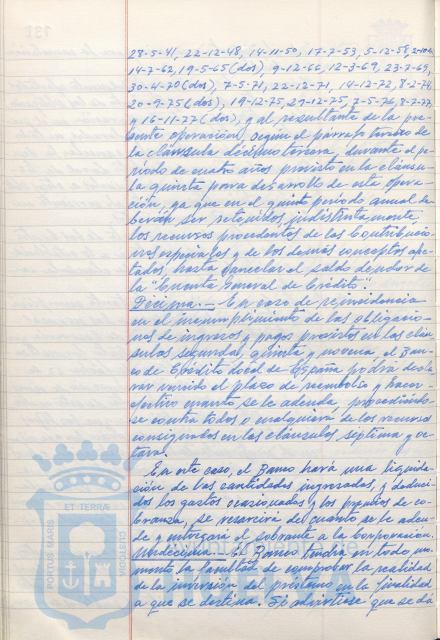 28-5-41, 22-12-48, 14-11-50, 17-7-53, 5-12-58,
14-7-62, 19-5-65 (dos), 9-12-66, 12-3-69, 23-7-69,
30-4-70 (dos), 7-5-71, 22-12-71, 14-12-72, 8-2-74,
20-9-75 (dos), 19-12-75, 29-12-75, 7-5-76, 8-7-77,
y 16-11-77 (dos), y al resultante de la pre-
sente operación, según el párrafo tercero de
la cláusula décimo tercera, durante el pe-
ríodo de cuatro años previsto en la cláusu-
la quinta para desarrollo de esta opera-
ción, ya que en el quinto período anual de-
berán ser retenidos, indistintamente,
los recursos procedentes de las Contribucio-
nes especiales y de los demás conceptos afec-
tados, hasta cancelar el saldo deudor de
la "Cuenta General de Crédito".
Décima.- En caso de reincidencia
en el incumplimiento de las obligacio-
nes de ingresos y pagos previstos en las cláu-
sulas segunda, quinta y novena, el Ban-
co de Crédito Local de España podrá decla-
rar vencido el plazo de reembolso y hacer
efectivo cuanto se le adeude, procediendo-
se contra todos o cualquiera de los recursos
consignados en las cláusulas, séptima y oc-
tava.
En este caso, el Banco hará una liquida-
ción de las cantidades ingresadas, y deduci-
dos los gastos ocasionados y los premios de co-
branza, se resarcirá de cuanto se le adeu-
de y entregará el sobrante a la Corporación.
Undécima.- El Banco tendrá en todo mo-
mento la facultad de comprobar la realidad
de la inversión del préstamo en la finalidad
a que se destina. Si advirtiese que se da
PORTUS MARIS ET TERRAE